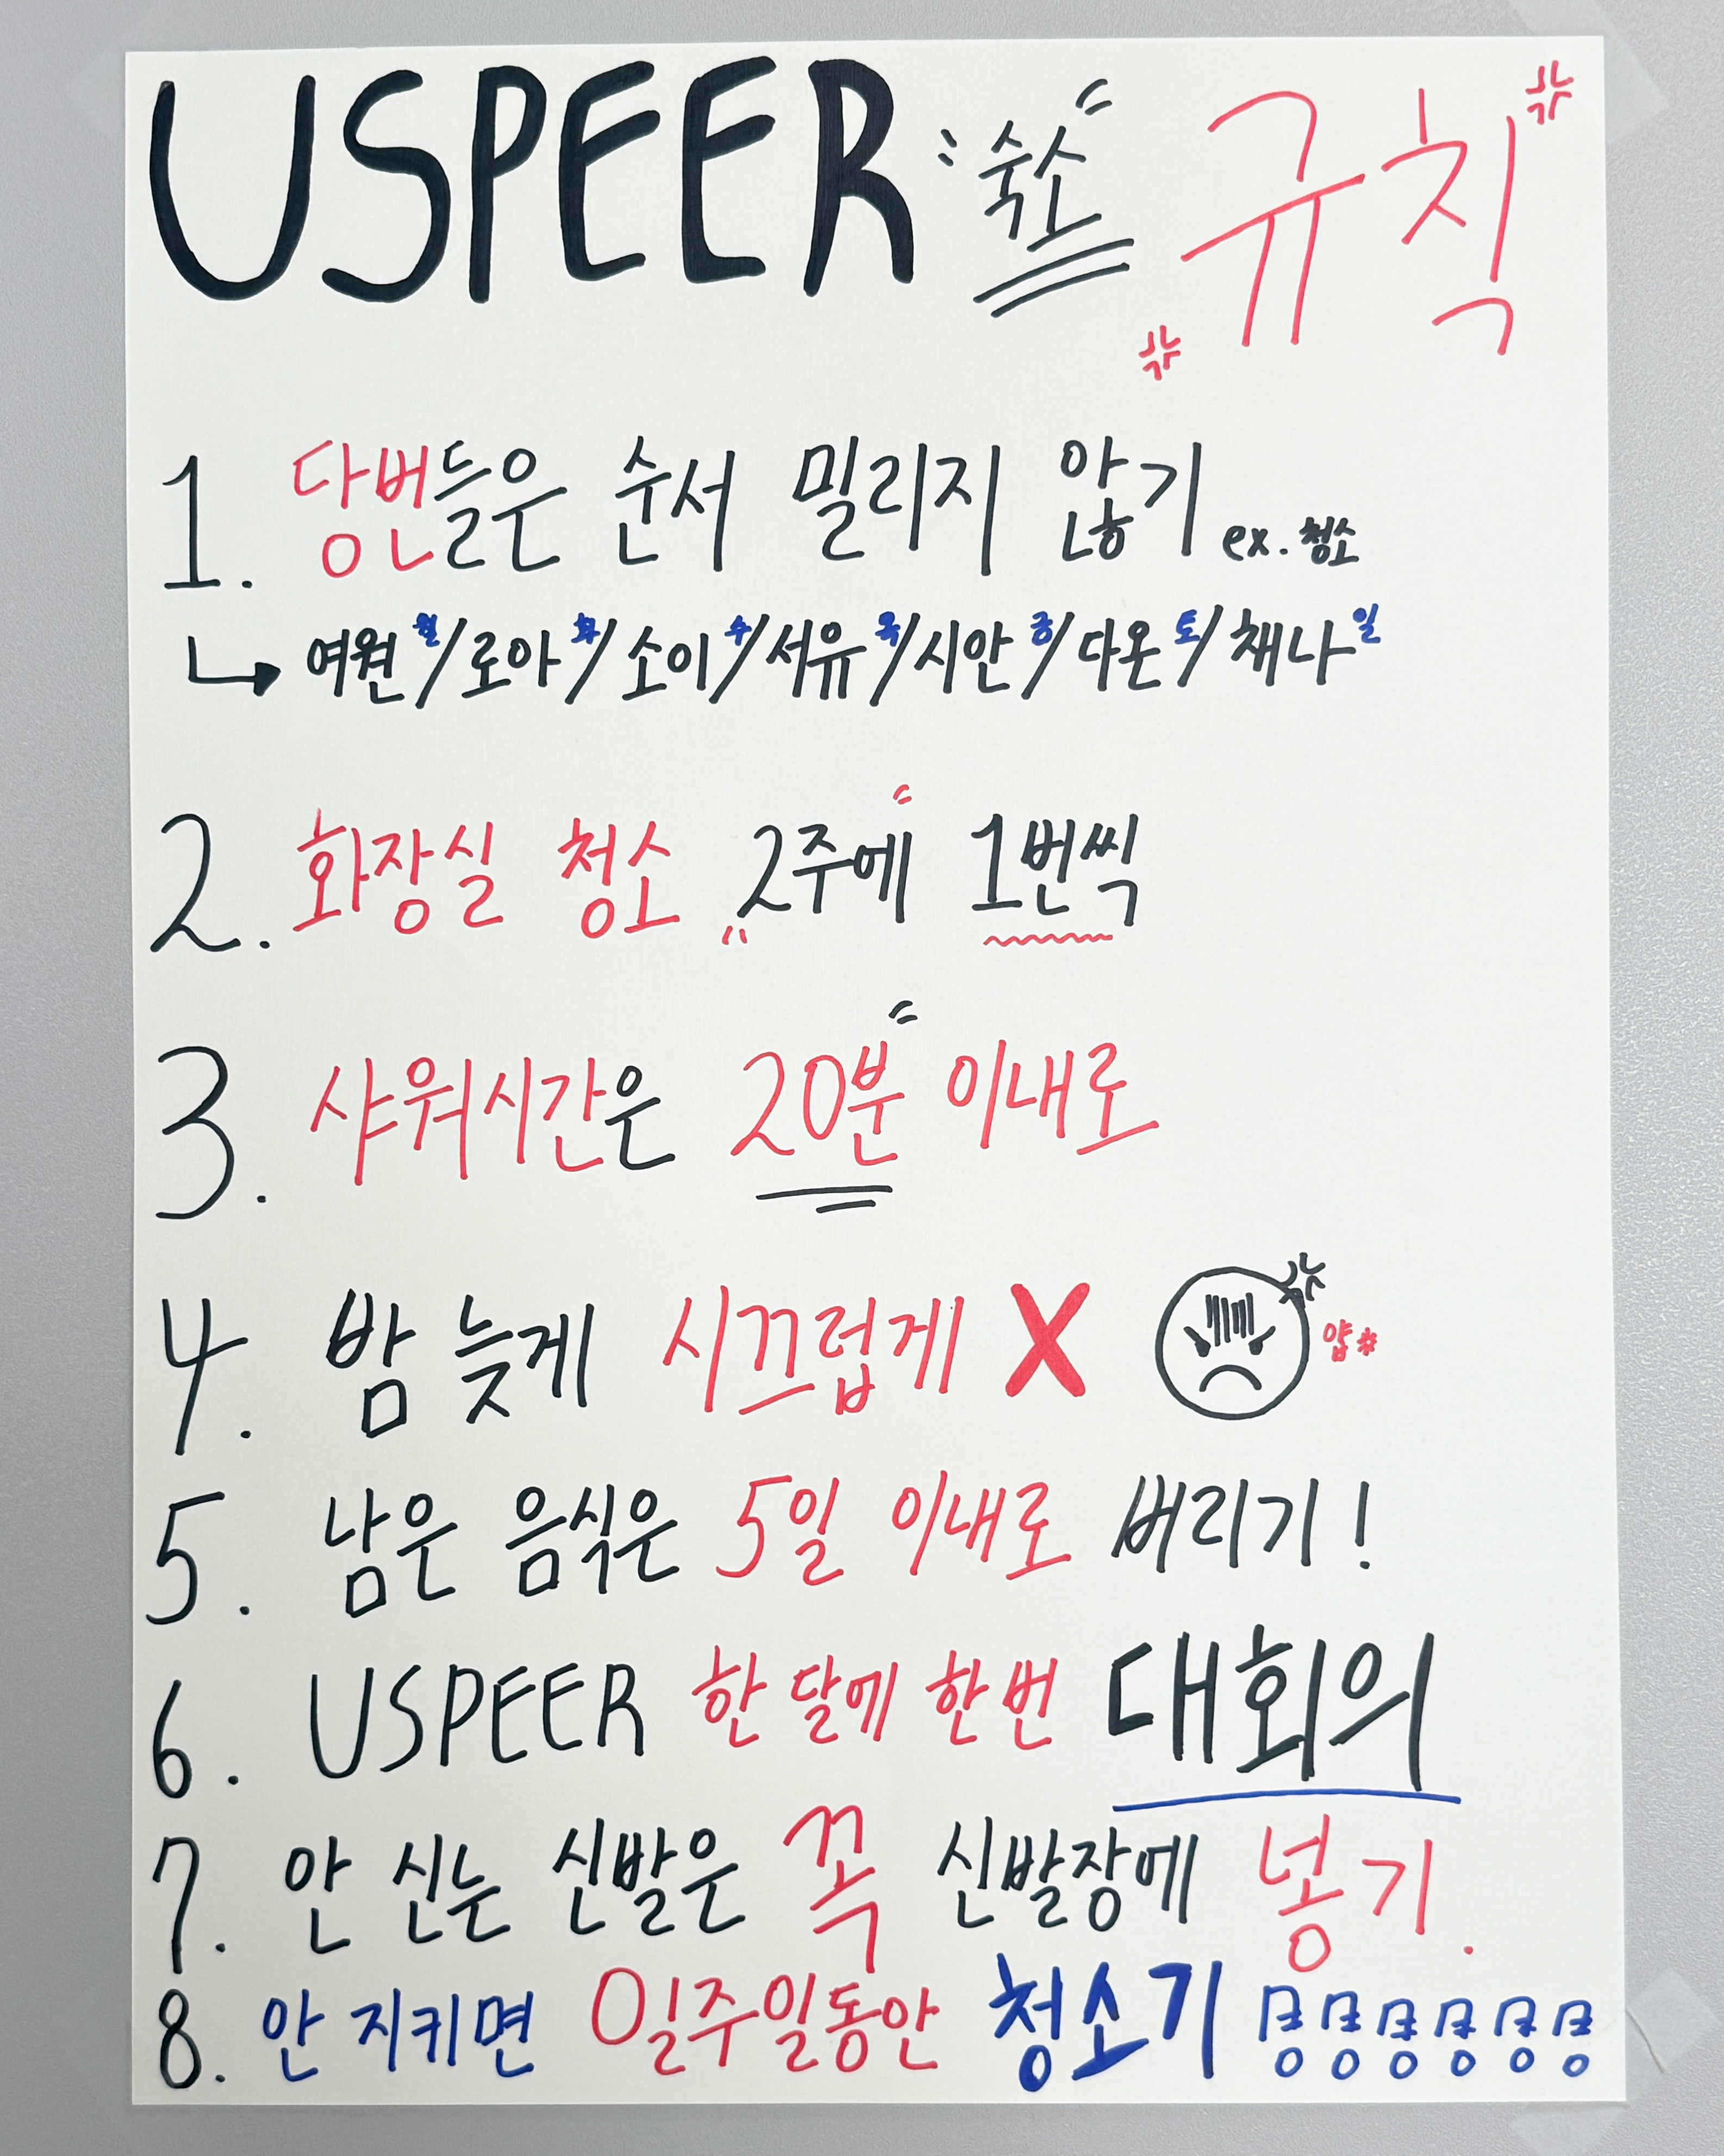 USPEER 숙소 규칙
1. 당번들은 순서 밀리지 않기 ex. 청소
여원 월/로아 화/소이 수/서유 목/시안 금/다온 토/채나 일
2. 화장실 청소 2주에 1번씩
3. 샤워시간은 20분 이내로
4. 밤 늦게 시끄럽게 X 얍*
5. 남은 음식은 5일 이내로 버리기!
6. USPEER 한 달에 한 번 대회의
7. 안 신는 신발은 꼭 신발장에 넣기.
8. 안 지키면 일주일동안 청소기